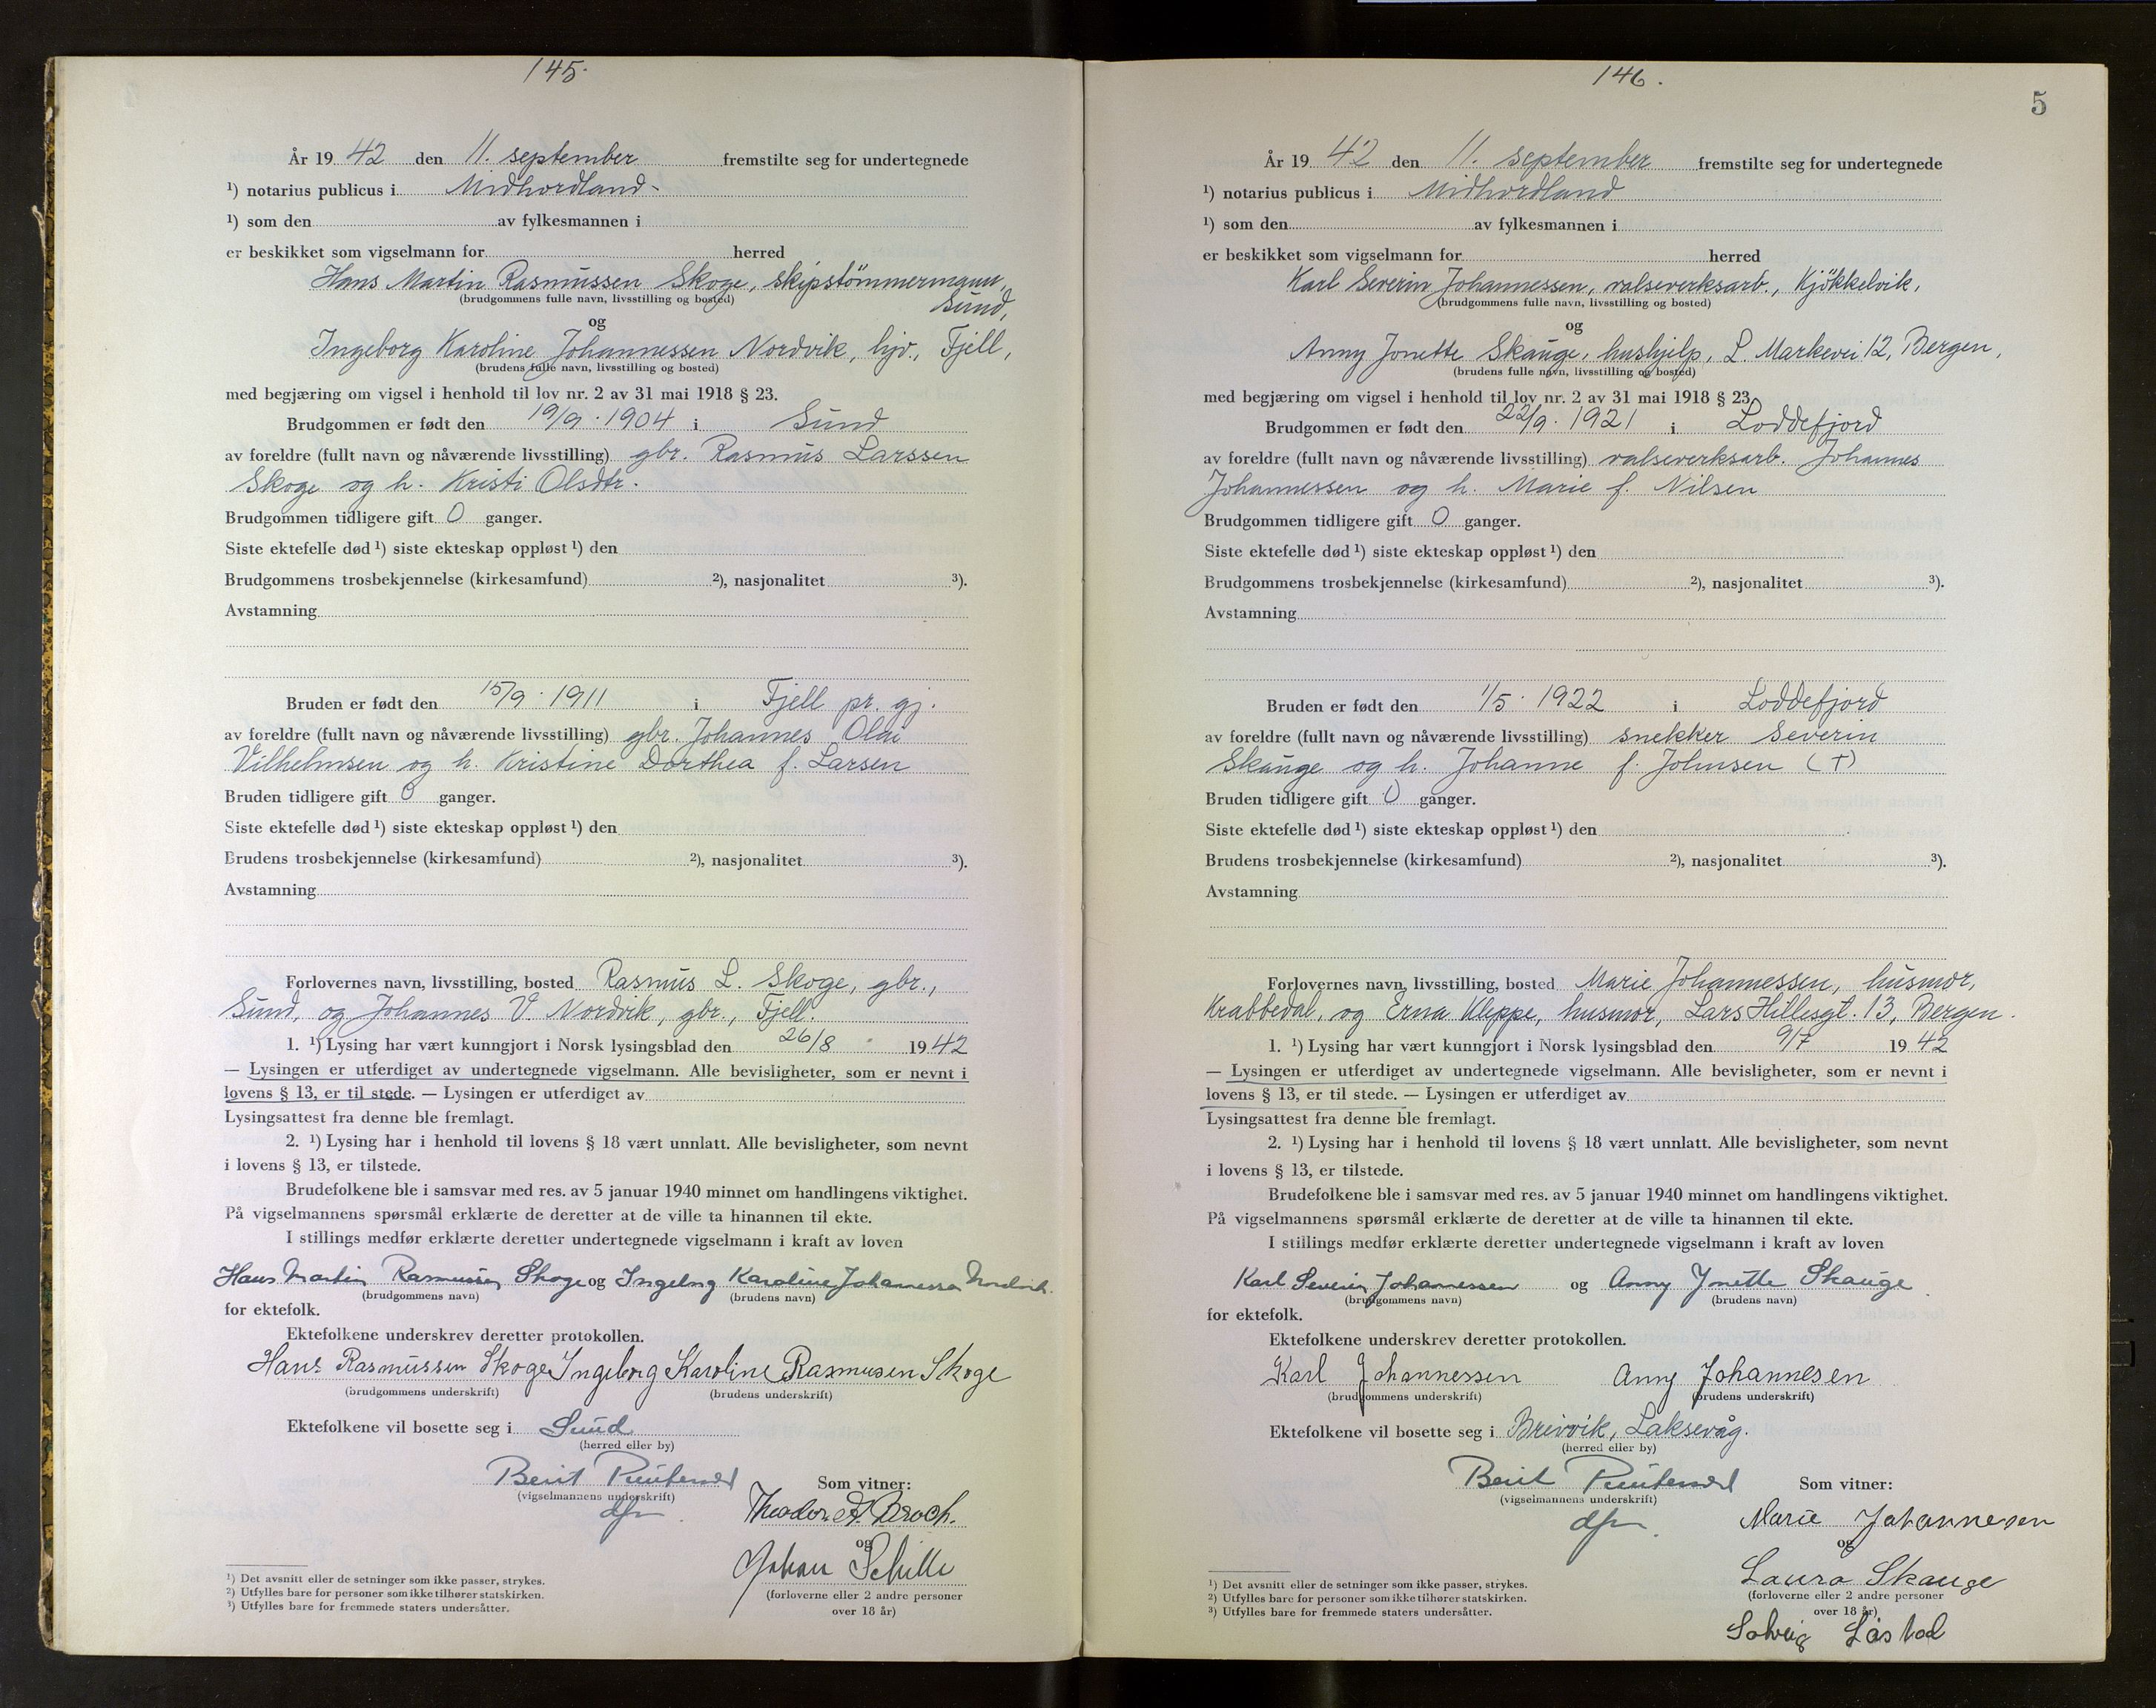 145.
År 19 42 den 11. september fremstilte seg for undertegnede
¹) notarius publicus i Midhordland-
¹) som den av fylkesmannen i
er beskikket som vigselmann for herred
Hans Martin Rasmussen Skoge, skipstömmermann,
(brudgommens fulle navn, livsstilling og bosted)
Sund,
og
Ingeborg Karoline Johannessen Nordvik, hjv., Fjell,
(brudens fulle navn, livsstilling og bosted)
med begjæring om vigsel i henhold til lov nr. 2 av 31 mai 1918 § 23.
Brudgommen er født den 19/9. 1904 i Sund
av foreldre (fullt navn og nåværende livsstilling) gbr. Rasmus Larssen
Skoge og h. Kristi Olsdtr.
Brudgommen tidligere gift 0 ganger.
Siste ektefelle død ¹) siste ekteskap oppløst ¹) den
Brudgommens trosbekjennelse (kirkesamfund) ²), nasjonalitet ³).
Avstamning
Bruden er født den 15/9. 1911 i Fjell pr. gj.
av foreldre (fullt navn og nåværende livsstilling) gbr. Johannes Olai
Vilhelmsen og h. Kristine Dorthea f. Larsen
Bruden tidligere gift 0 ganger.
Siste ektefelle død ¹) siste ekteskap oppløst ¹) den
Brudens trosbekjennelse (kirkesamfund) ²), nasjonalitet ³).
Avstamning
Forlovernes navn, livsstilling, bosted Rasmus L. Skoge, gbr.,
Sund, og Johannes V. Nordvik, gbr., Fjell.
1. ¹) Lysing har vært kunngjort i Norsk lysingsblad den 26/8 19 42
— Lysingen er utferdiget av undertegnede vigselmann. Alle bevisligheter, som er nevnt i
lovens § 13, er til stede. — Lysingen er utferdiget av
Lysingsattest fra denne ble fremlagt.
2. ¹) Lysing har i henhold til lovens § 18 vært unnlatt. Alle bevisligheter, som nevnt
i lovens § 13, er tilstede.
Brudefolkene ble i samsvar med res. av 5 januar 1940 minnet om handlingens viktighet.
På vigselmannens spørsmål erklærte de deretter at de ville ta hinannen til ekte.
I stillings medfør erklærte deretter undertegnede vigselmann i kraft av loven
Hans Martin Rasmussen Skoge og Ingeborg Karoline Johannessen Nordvik.
(brudgommens navn) (brudens navn)
for ektefolk.
Ektefolkene underskrev deretter protokollen.
Hans Rasmussen Skoge Ingeborg Karoline Rasmusen Skoge
(brudgommens underskrift) (brudens underskrift)
Ektefolkene vil bosette seg i Sund
(herred eller by)
Berit
(vigselmannens underskrift)
dfm
Som vitner:
Theodor A. Broch.
og
Johan Schille
(forloverne eller 2 andre personer
over 18 år)
¹) Det avsnitt eller de setninger som ikke passer, strykes.
²) Utfylles bare for personer som ikke tilhører statskirken.
³) Utfylles bare for fremmede staters undersåtter.
146.
5
År 19 42 den 11. september fremstilte seg for undertegnede
¹) notarius publicus i Midhordland
¹) som den av fylkesmannen i
er beskikket som vigselmann for herred
Karl Severin Johannessen, valseverksarb., Kjökkelvik,
(brudgommens fulle navn, livsstilling og bosted)
og
Anny Jonette Skauge, hushjelp, L. Markevei 12, Bergen,
(brudens fulle navn, livsstilling og bosted)
med begjæring om vigsel i henhold til lov nr. 2 av 31 mai 1918 § 23.
Brudgommen er født den 22/9. 1921 i Loddefjord
av foreldre (fullt navn og nåværende livsstilling) valseverksarb. Johannes
Johannessen og h. Marie f. Nilsen
Brudgommen tidligere gift 0 ganger.
Siste ektefelle død ¹) siste ekteskap oppløst ¹) den
Brudgommens trosbekjennelse (kirkesamfund) ²), nasjonalitet ³).
Avstamning
Bruden er født den 1/5. 1922 i Loddefjord
av foreldre (fullt navn og nåværende livsstilling) snekker Severin
Skauge og h. Johanne f. Johnsen (†)
Bruden tidligere gift 0 ganger.
Siste ektefelle død ¹) siste ekteskap oppløst ¹) den
Brudens trosbekjennelse (kirkesamfund) ²), nasjonalitet ³).
Avstamning
Forlovernes navn, livsstilling, bosted Marie Johannessen, husmor,
Krabbedal, og Erna Kleppe, husmor, Lars Hillesgt. 13, Bergen.
1. ¹) Lysing har vært kunngjort i Norsk lysingsblad den 9/7 19 42
— Lysingen er utferdiget av undertegnede vigselmann. Alle bevisligheter, som er nevnt i
lovens § 13, er til stede. — Lysingen er utferdiget av
Lysingsattest fra denne ble fremlagt.
2. ¹) Lysing har i henhold til lovens § 18 vært unnlatt. Alle bevisligheter, som nevnt
i lovens § 13, er tilstede.
Brudefolkene ble i samsvar med res. av 5 januar 1940 minnet om handlingens viktighet.
På vigselmannens spørsmål erklærte de deretter at de ville ta hinannen til ekte.
I stillings medfør erklærte deretter undertegnede vigselmann i kraft av loven
Karl Severin Johannessen og Anny Jonette Skauge
(brudgommens navn) (brudens navn)
for ektefolk.
Ektefolkene underskrev deretter protokollen.
Karl Johannessen Anny Johannesen
(brudgommens underskrift) (brudens underskrift)
Ektefolkene vil bosette seg i Breivik, Laksevåg.
(herred eller by)
Berit
(vigselmannens underskrift)
dfm.
Som vitner:
Marie Johannesen
og
Laura Skauge
(forloverne eller 2 andre personer
over 18 år)
Solveig
¹) Det avsnitt eller de setninger som ikke passer, strykes.
²) Utfylles bare for personer som ikke tilhører statskirken.
³) Utfylles bare for fremmede staters undersåtter.